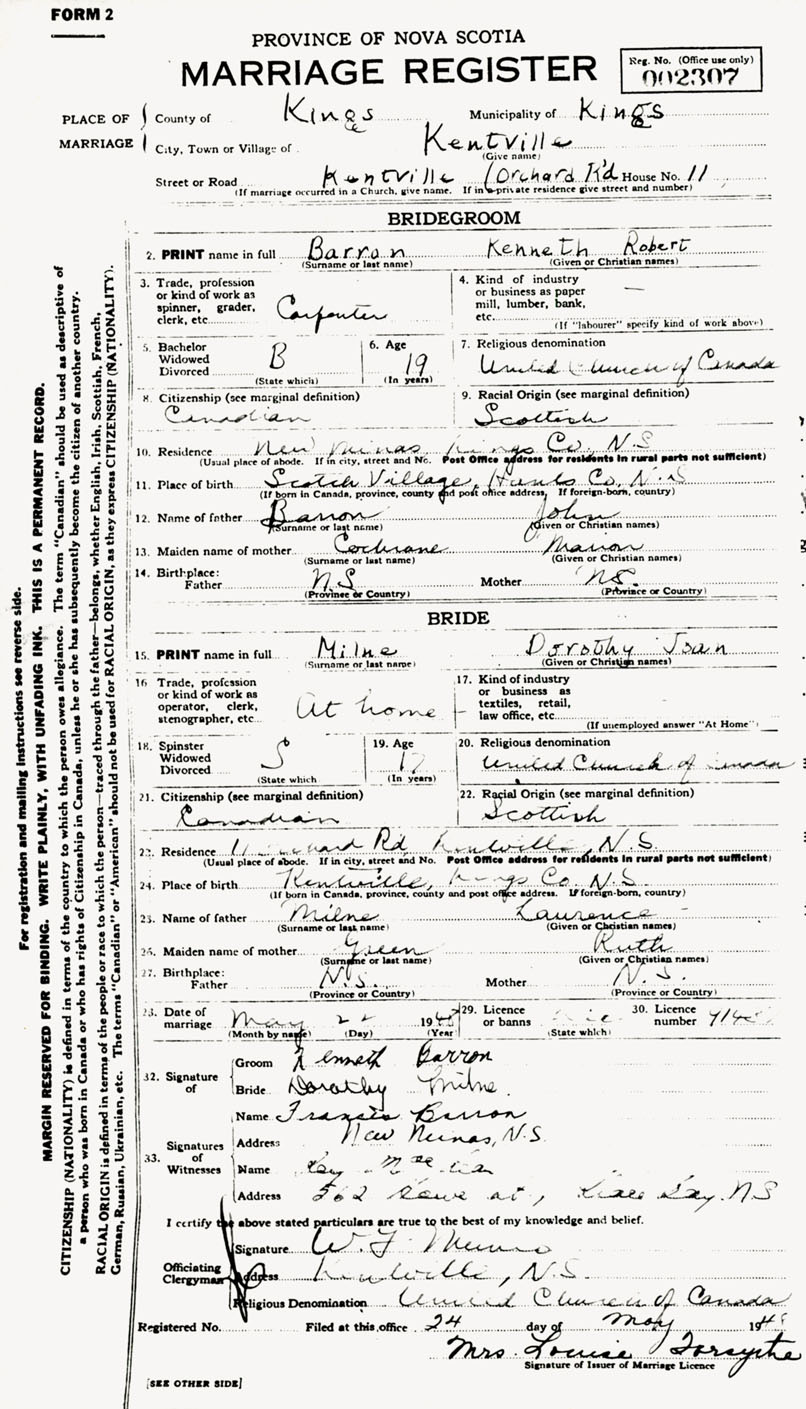 FORM 2
PROVINCE OF NOVA SCOTIA
MARRIAGE REGISTER
Reg. No. (Office use only)
002307
PLACE OF MARRIAGE
County of Kings Municipality of Kings
City, Town or Village of Kentville
(Give name)
Street or Road Kentville / Orchard Rd House No. 11
(If marriage occurred in a Church, give name. If in private residence give street and number)
BRIDEGROOM
2. PRINT name in full Barron Kenneth Robert
(Surname or last name) (Given or Christian names)
3. Trade, profession or kind of work as spinner, grader, clerk, etc. Carpenter
4. Kind of industry or business as paper mill, lumber, bank, etc. —
(If "labourer" specify kind of work above)
5. Bachelor Widowed Divorced B
(State which)
6. Age 19
(In years)
7. Religious denomination
United Church of Canada
8. Citizenship (see marginal definition)
Canadian
9. Racial Origin (see marginal definition)
Scottish
10. Residence New Minas Kings Co, N.S
(Usual place of abode. If in city, street and No. Post Office address for residents in rural parts not sufficient)
11. Place of birth Scotch Village, Hants Co. N.S
(If born in Canada, province, county and post office address, If foreign-born, country)
12. Name of father Barron John
(Surname or last name) (Given or Christian names)
13. Maiden name of mother Cochrane Marion
(Surname or last name) (Given or Christian names)
14. Birthplace: Father N.S Mother N.S.
(Province or Country) (Province or Country)
BRIDE
15. PRINT name in full Milne Dorothy Joan
(Surname or last name) (Given or Christian names)
16 Trade, profession or kind of work as operator, clerk, stenographer, etc. At home
17. Kind of industry or business as textiles, retail, law office, etc.
(If unemployed answer "At Home")
18. Spinster Widowed Divorced S
(State which
19. Age 17
(In years)
20. Religious denomination
United Church of Canada
21. Citizenship (see marginal definition)
Canadian
22. Racial Origin (see marginal definition)
Scottish
23. Residence 11 Orchard Rd Kentville, N.S.
(Usual place of abode. If in city, street and No. Post Office address for residents in rural parts not sufficient)
24. Place of birth Kentville, Kings Co. N.S.
(If born in Canada, province, county and post office address, If foreign-born, country)
25. Name of father Milne Laurence
(Surname or last name) (Given or Christian names)
26. Maiden name of mother Green Ruth
(Surname or last name) (Given or Christian names)
27. Birthplace: Father N.S. Mother N.S.
(Province or Country) (Province or Country)
28. Date of marriage May 22 194
(Month by name) (Day) (Year)
29. Licence or banns Lic
(State which)
30. Licence number
32. Signature of
Groom Kenneth Barron
Bride Dorothy Milne.
33. Signatures of Witnesses
Name Francis Barron
Address New Minas, N.S.
Name
Address 562 Bay. N S
I certify the above stated particulars are true to the best of my knowledge and belief.
Officiating Clergyman
Signature W. J. Munro
Address Kentville, N.S.
Religious Denomination United Church of Canada
Registered No. Filed at this office 24 day of May 194
Mrs. Louise Forsythe
Signature of Issuer of Marriage Licence
[SEE OTHER SIDE]
For registration and mailing instructions see reverse side.
MARGIN RESERVED FOR BINDING. WRITE PLAINLY, WITH UNFADING INK. THIS IS A PERMANENT RECORD.
CITIZENSHIP (NATIONALITY) is defined in terms of the country to which the person owes allegiance. The term "Canadian" should be used as descriptive of
a person who was born in Canada or who has rights of Citizenship in Canada, unless he or she has subsequently become the citizen of another country.
RACIAL ORIGIN is defined in terms of the people or race to which the person—traced through the father—belongs, whether English, Irish, Scottish, French,
German, Russian, Ukrainian, etc. The terms "Canadian" or "American" should not be used for RACIAL ORIGIN, as they express CITIZENSHIP (NATIONALITY).